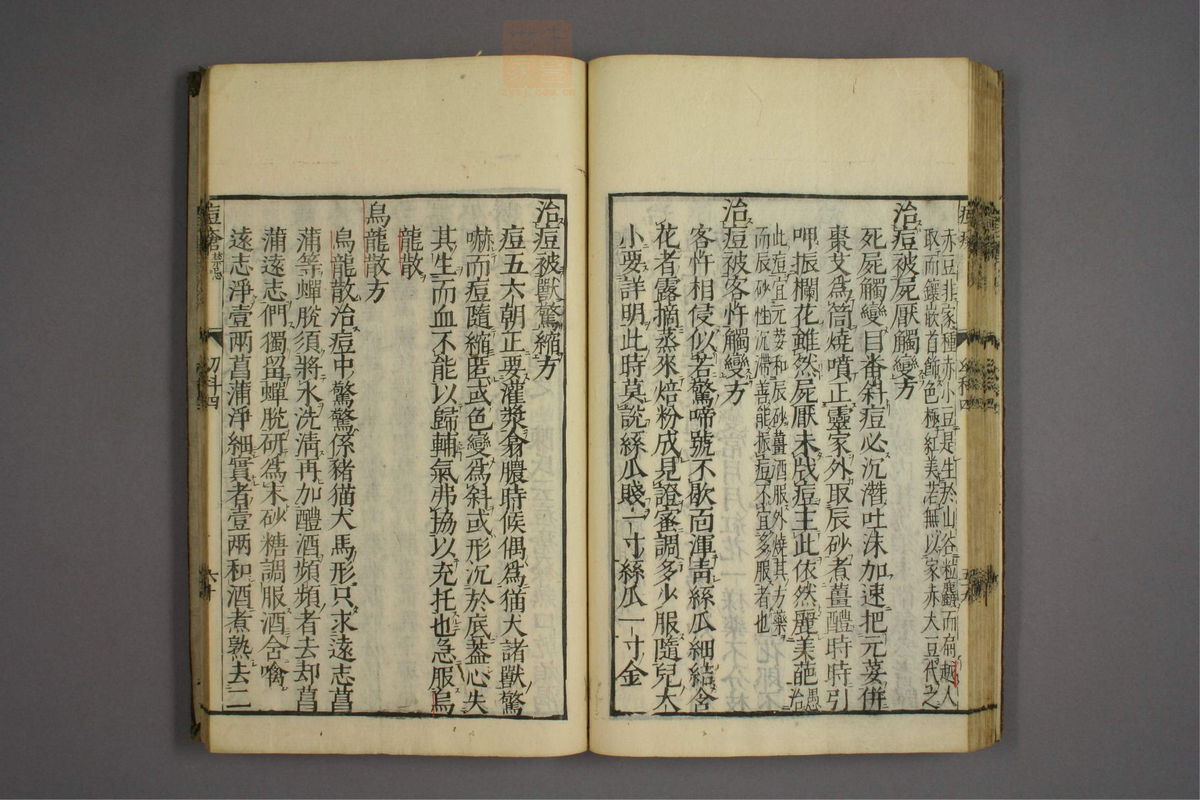 赤豆非家種赤小豆是生於山谷粒麤而扁越人
取而鑲嵌首飾色極紅美若無以家赤大豆代之
治痘被屍厭觸變方
死屍觸變目番斜痘必沉潛吐沫加速把元荽併
棗艾為筒燒噴正靈家外取辰砂煮薑醴時時引
呷振欄花雖然屍厭未成痘主此依然麗美葩愚治
此痘宜元荽和辰砂薑酒服外燒其方藥
而辰砂性沉滯善能振痘不宜多服者也
治痘被客忤觸變方
客忤相侵似若驚啼號不歇面渾青絲瓜細結含
花者露摘蒸來焙粉成見證蜜調多少服隨兒大
小要詳明此時莫說絲瓜賤一寸絲瓜一寸金
幼科四
治痘被獸驚縮方
痘五六朝正要灌漿翕膿時候偶為猫犬諸獸驚
嚇而痘隨縮匿或色變為斜或形沉於底蓋心失
其生而血不能以歸輔氣弗協以充托也急服烏
龍散
烏龍散方
烏龍散治痘中驚驚係豬猫犬馬形只求遠志菖
蒲等蟬脫須將水洗清再加醴酒頻頻者去却菖
蒲遠志們獨留蟬脫研為末砂糖調服酒含噙
遠志淨壹兩菖蒲淨細實者壹兩和酒煮熟去二
痘瘡
幼科四
六十